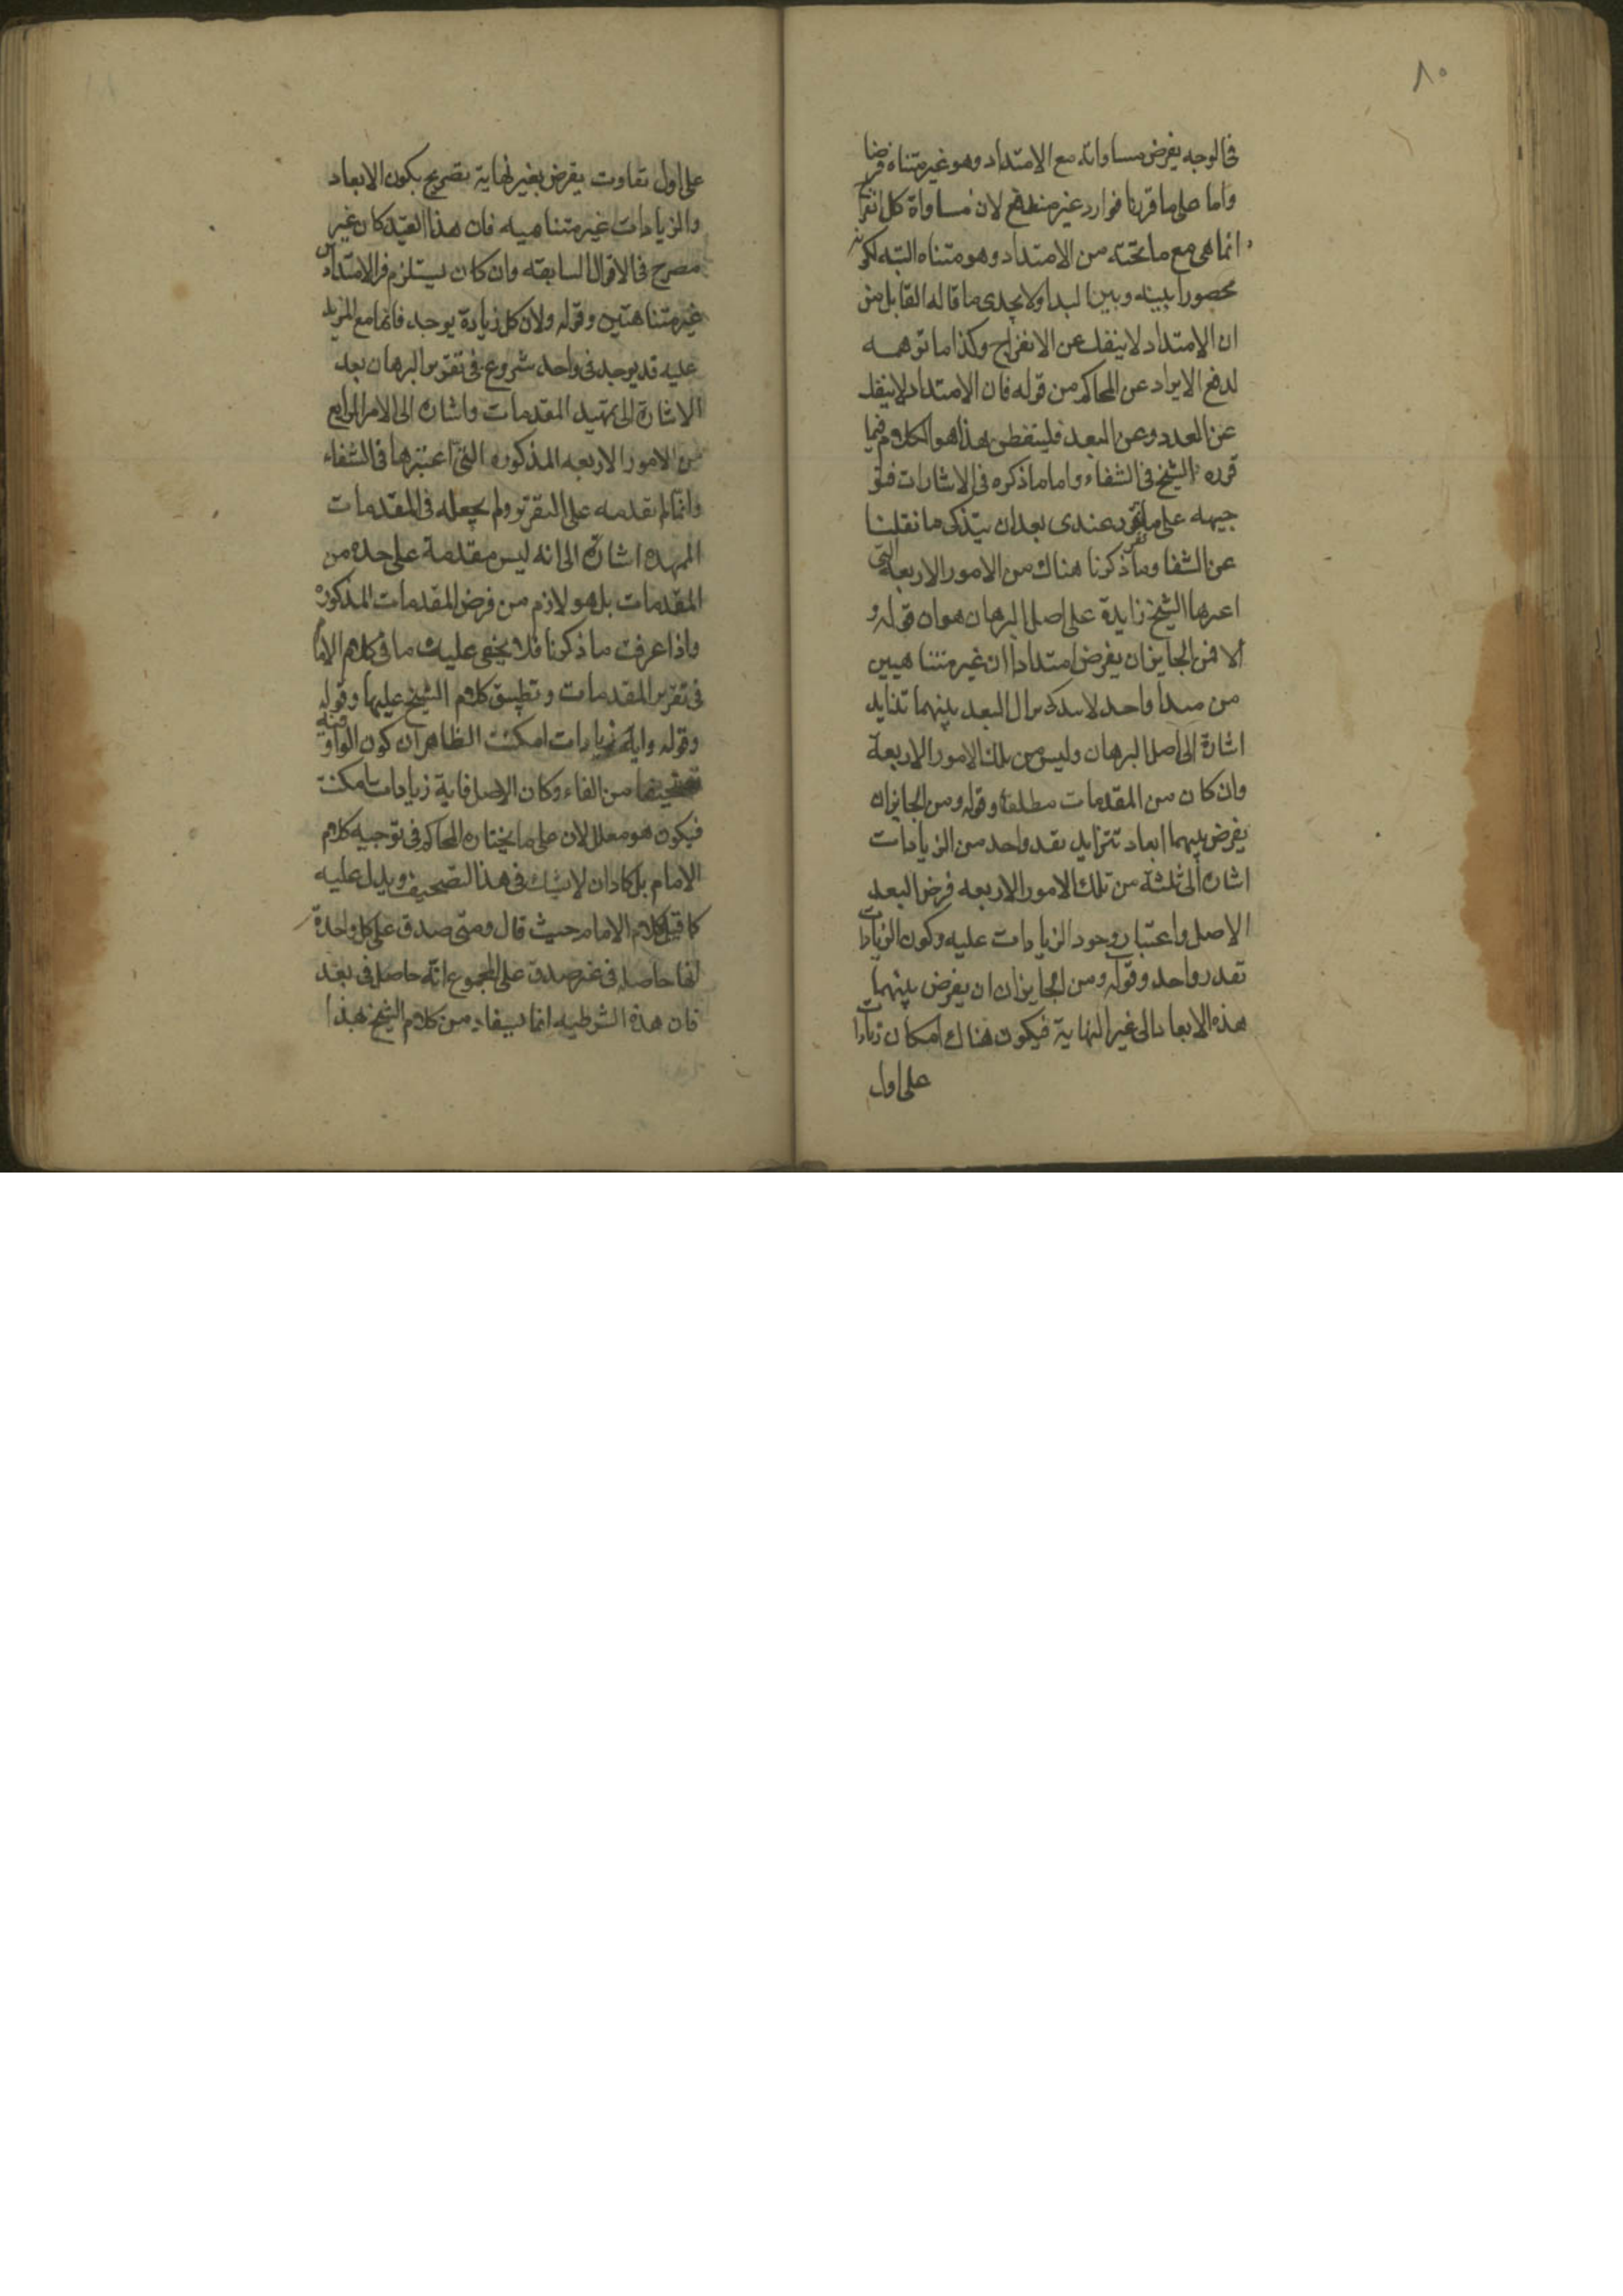 ٨٠
فى الوجه يفرض مساواته مع الامتداد وهو غير متناه فرضا
واما على ما قررنا فوارد غير مندفع لان مساواة كل انفراج
انما هى مع ما تحته من الامتداد وهو متناه البته لكونه
محصورا بينه وبين المبداء ولا يجدى ما قاله القايل من
ان الامتداد لا ينفك عن الانفراج وكذا ما توهمه
لدفع الايراد عن المحاكم من قوله فان الامتداد لا ينفك
عن العدد وعن البعد فليتفطن هذا هو الكلام فيما
قرره الشيخ فى الشفاء واما ما ذكره فى الاشارات فتو
جيهه على ما تقرر عندى بعد ان يتذكر ما نقلنا
عن الشفا وما ذكرنا هناك من الامور الاربعة التى
اعبرها الشيخ زايدة على اصل البرهان هو ان قوله و
الا فمن الجايز ان يفرض امتدادان غير متناهيين
من مبدا واحد لا يزال البعد بينهما تزايد
اشارة الى اصل البرهان وليس من تلك الامور الاربعة
وان كان من المقدمات مطلقا وقوله ومن الجايز ان
يفرض بينهما ابعاد تتزايد بقدر واحد من الزيادات
اشارة الى ثلثة من تلك الامور الاربعه فرض البعد
الاصل واعتبار وجود الزيادات عليه وكون الزيادات
بقدر واحد وقوله ومن الجايز ان ان يفرض بينهما
هذه الابعاد الى غير النهاية فيكون هناك امكان زيادات
على اول
على اول تفاوت يفرض بغير نهاية تصريح بكون الابعاد
والزيادات غير متناهيه فان هذا القيد كان غير
مصرح فى الاقوال السابقه وان كان يستلزم فرض الامتدادين
غير متناهيين وقوله ولان كل زيادة يوجد فانها مع المزيد
عليه قد يوجد فى واحد شروع فى تقرير البرهان بعد
الاشارة الى تمهيد المقدمات واشارة الى الامر الرابع
من الامور الاربعه المذكوره التى اعتبرها فى الشفاء
وانما لم يقدمه على التقرير ولم يجعله فى المقدمات
الممهده اشارة الى انه ليس مقدمة على حده من
المقدمات بل هو لازم من فرض المقدمات المذكوره
واذا عرفت ما ذكرنا فلا يخفى عليك ما فى كلام الامام
فى تقرير المقدمات وتطبيق كلام الشيخ عليها وقوله
وقوله واية زيادات امكنت الظاهر ان كون الواو فيه
تصحيفا من الفاء وكان الاصل فاية زيادات امكنت
فيكون هو معلل لان على ما يختاره المحاكم فى توجيه كلام
الامام بل كاد ان لا يشك فى هذا التصحيف ويدل عليه
كلام الامام حيث قال ومتى صدق على كل واحدة
انها حاصله فى غير صدق على المجموع انه حاصل فى بعد
فان هذه الشرطيه انما يستفاد من كلام الشيخ هذا